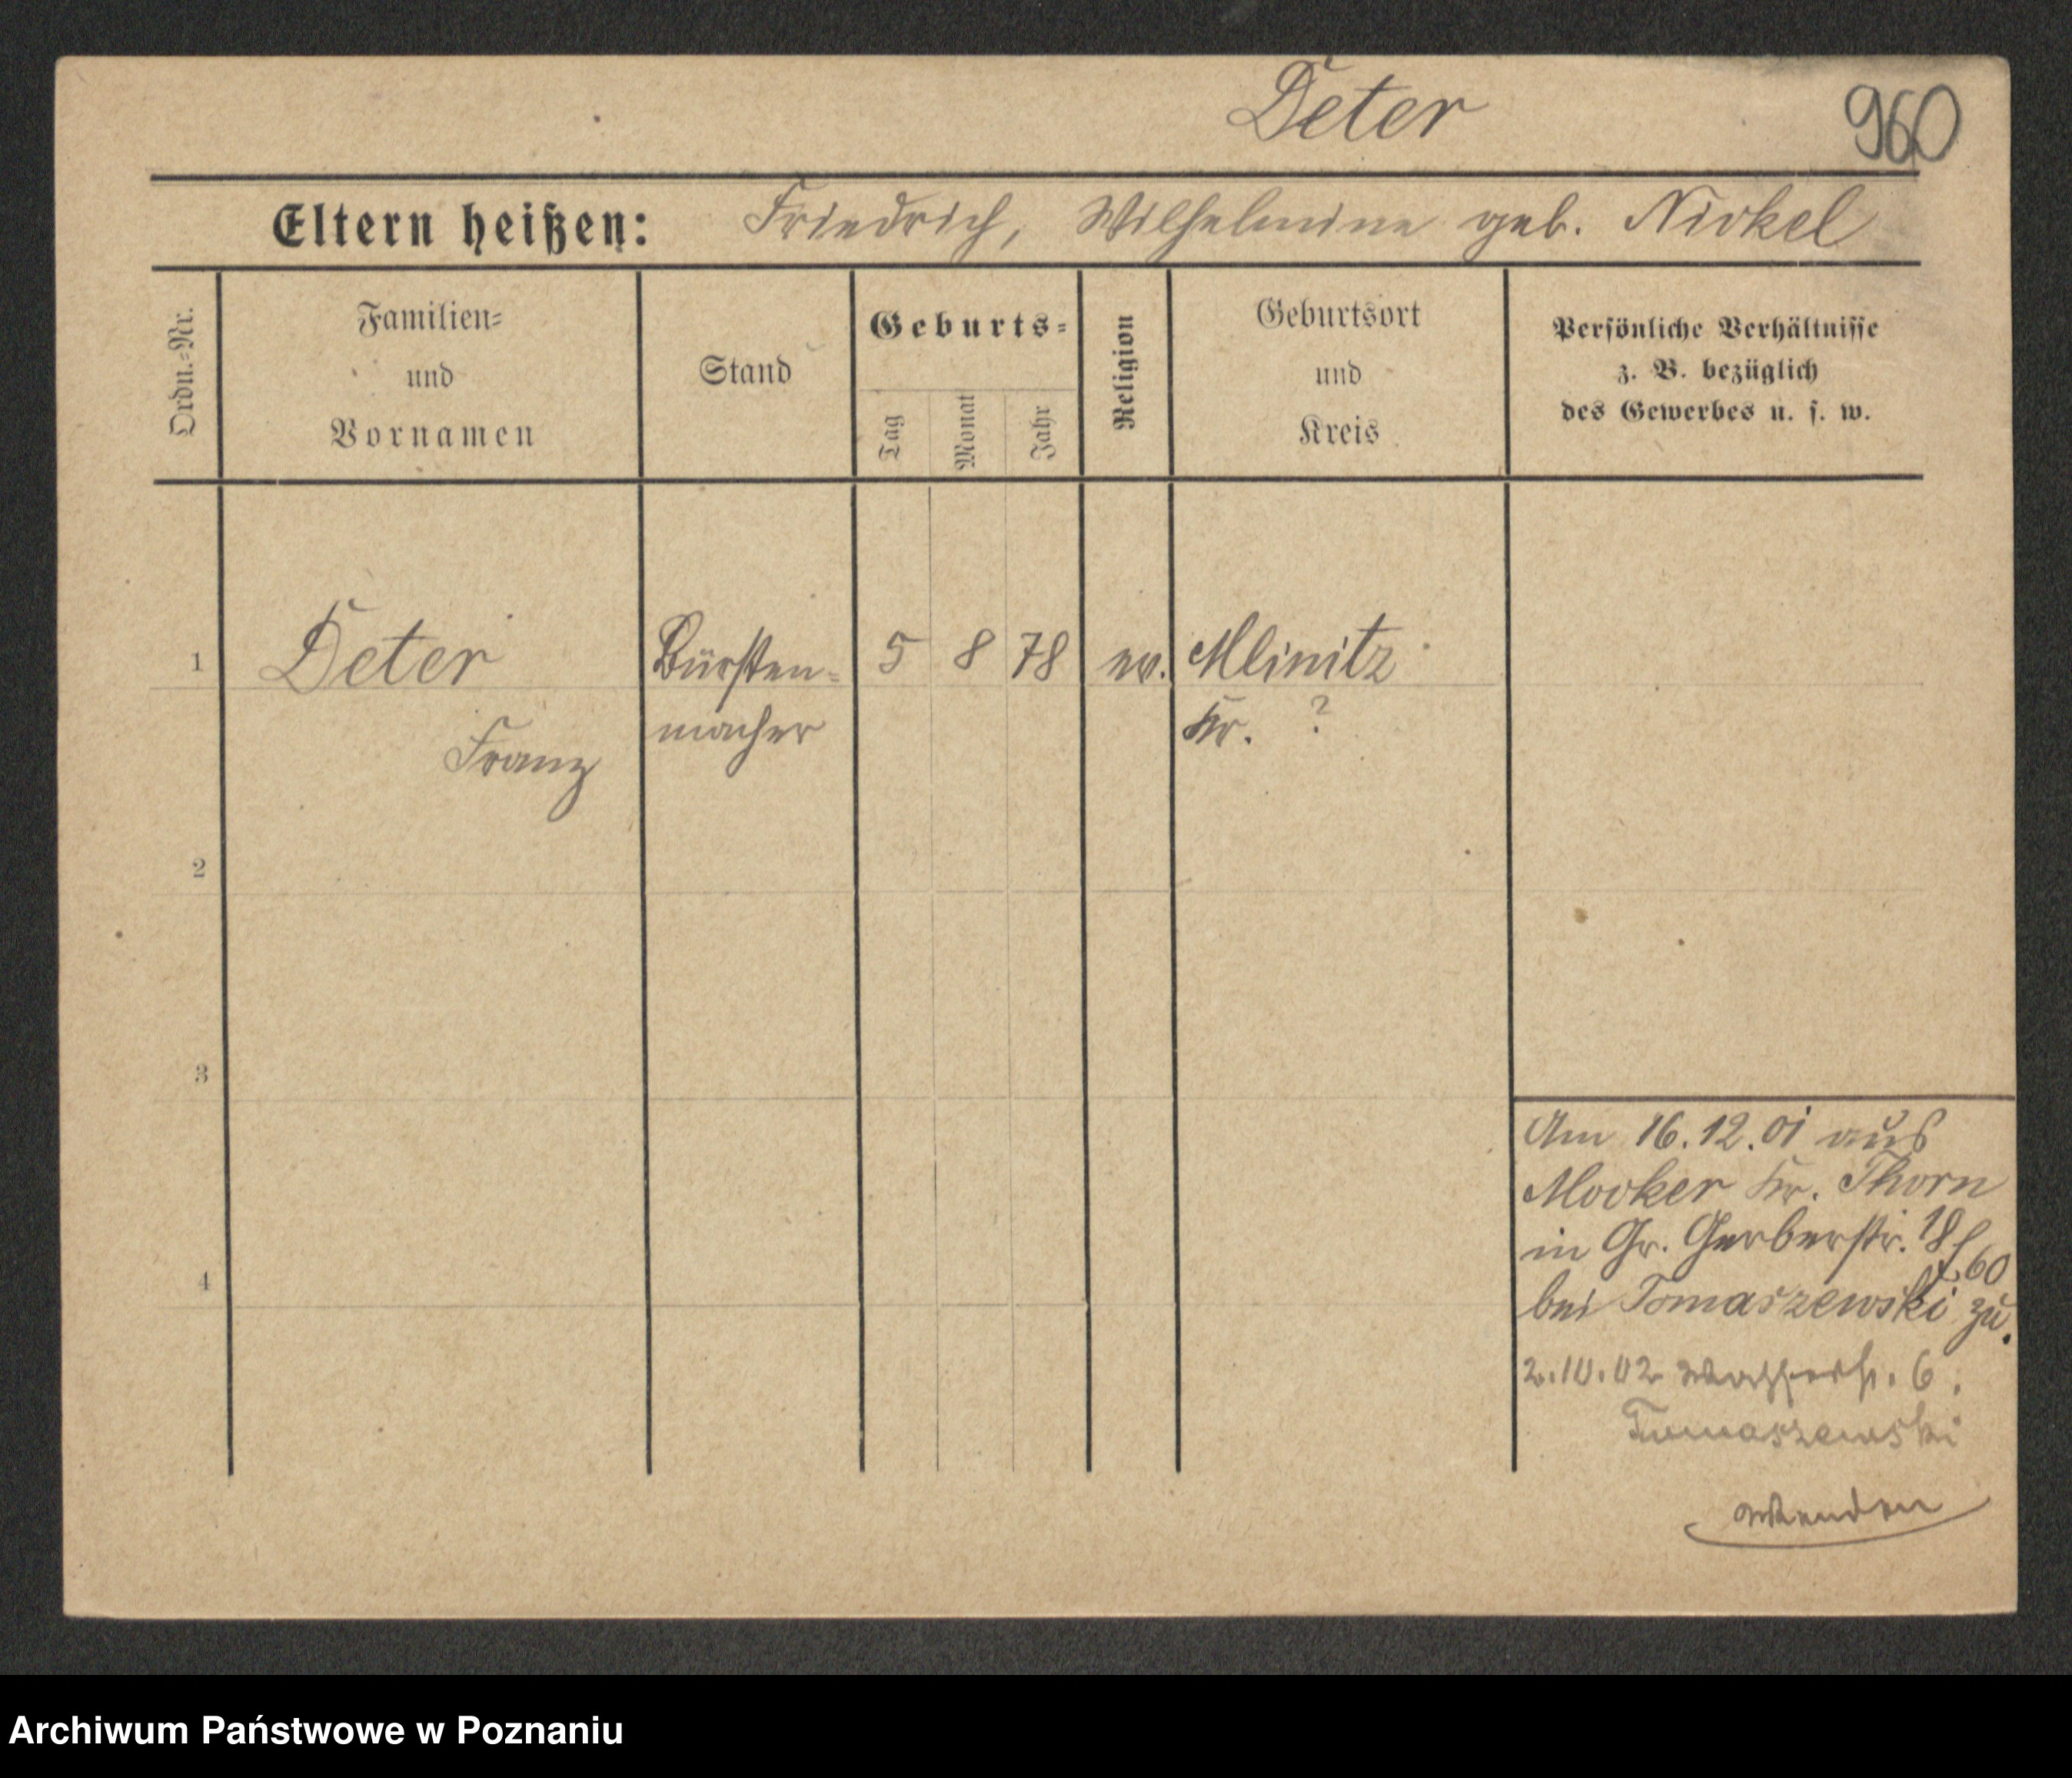 Deter
960
Eltern heißen: Friedrich, Wilhelmine geb. Nickel
Ordn.-Nr.
Familien-
und
Vornamen
Stand
Geburts-
Tag
Monat
Jahr
Religion
Geburtsort
und
Kreis
Persönliche Verhältnisse
z. B. bezüglich
des Gewerbes u. s. w.
1 Deter Bürsten- 5 8 78 ev. Mlinitz
Franz macher Kr. ?
2
3
4
Am 16.12.01 aus
Mocker Kr. Thorn
in Gr. Gerberstr. 18
f. 60
bei Tomaszewski zu.
2.10.02 Wasserstr. 6.
Tomaszewski
Wenden
Archiwum Państwowe w Poznaniu